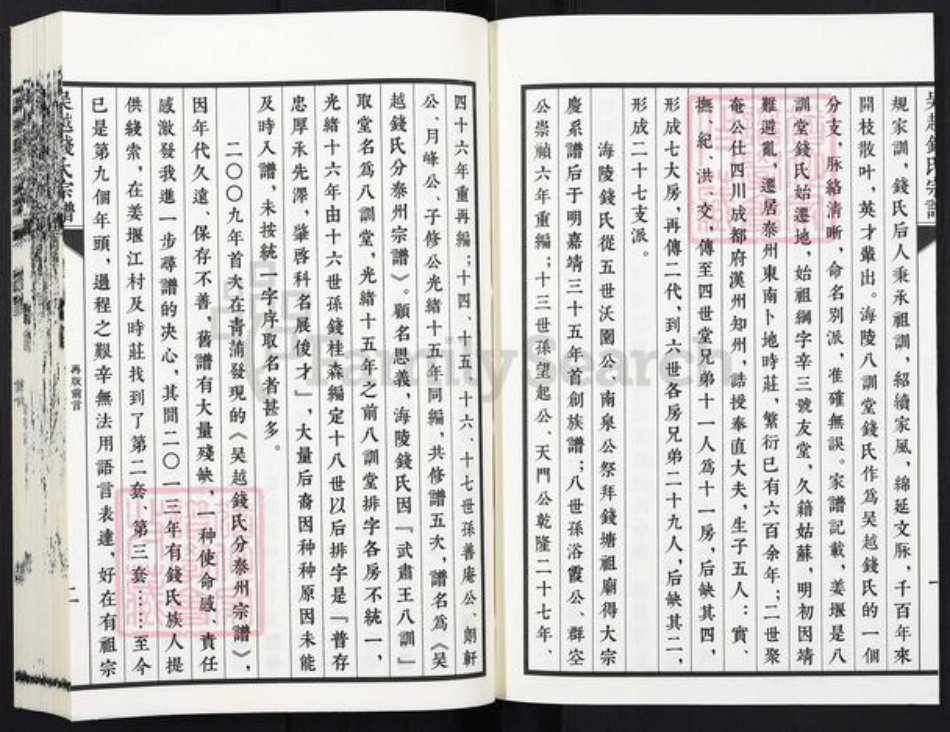 規家訓,錢氏后人秉承祖訓,紹續家風,綿延文脉,千百年來
開枝散叶,英才輩出。海陵八訓堂錢氏作爲吴越錢氏的一個
分支,脉絡清晰,命名别派,准確無誤。家譜記載,姜堰是八
訓堂錢氏始遷地,始祖綱字辛三號友堂,久籍姑蘇,明初因靖
難避亂,遷居泰州東南卜地時莊,繁衍已有六百余年;二世聚
奄公仕四川成都府漢州知州,誥授奉直大夫,生子五人:實、
撫、紀、洪、交,傳至四世堂兄弟十一人爲十一房,后缺其四,
形成七大房,再傳二代,到六世各房兄弟二十九人,后缺其二,
形成二十七支派。
海陵錢氏從五世沃園公、南泉公祭拜錢塘祖廟得大宗
慶系譜后于明嘉靖三十五年首創族譜;八世孫浴霞公、群空
公崇禎六年重編;十三世孫望起公、天門公乾隆二十七年、
吴越錢氏宗譜
一
四十六年重再編;十四、十五、十六、十七世孫善庵公、朗軒
公、月峰公、子修公光緒十五年同編,共修譜五次,譜名爲《吴
越錢氏分泰州宗譜》。顧名思義,海陵錢氏因「武肅王八訓」
取堂名爲八訓堂,光緒十五年之前八訓堂排字各房不統一,
光緒十六年由十六世孫錢桂森編定十八世以后排字是「普存
忠厚承先澤,肇啓科名展俊才」,大量后裔因种种原因未能
及時入譜,未按統一字序取名者甚多。
二〇〇九年首次在青蒲發現的《吴越錢氏分泰州宗譜》,
因年代久遠、保存不善,舊譜有大量殘缺,一种使命感、責任
感激發我進一步尋譜的决心,其間二〇一三年有錢氏族人提
供綫索,在姜堰江村及時莊找到了第二套、第三套……至今
已是第九個年頭,過程之艱辛無法用語言表達,好在有祖宗
吴越錢氏宗譜
再版前言
二
FamilySearch